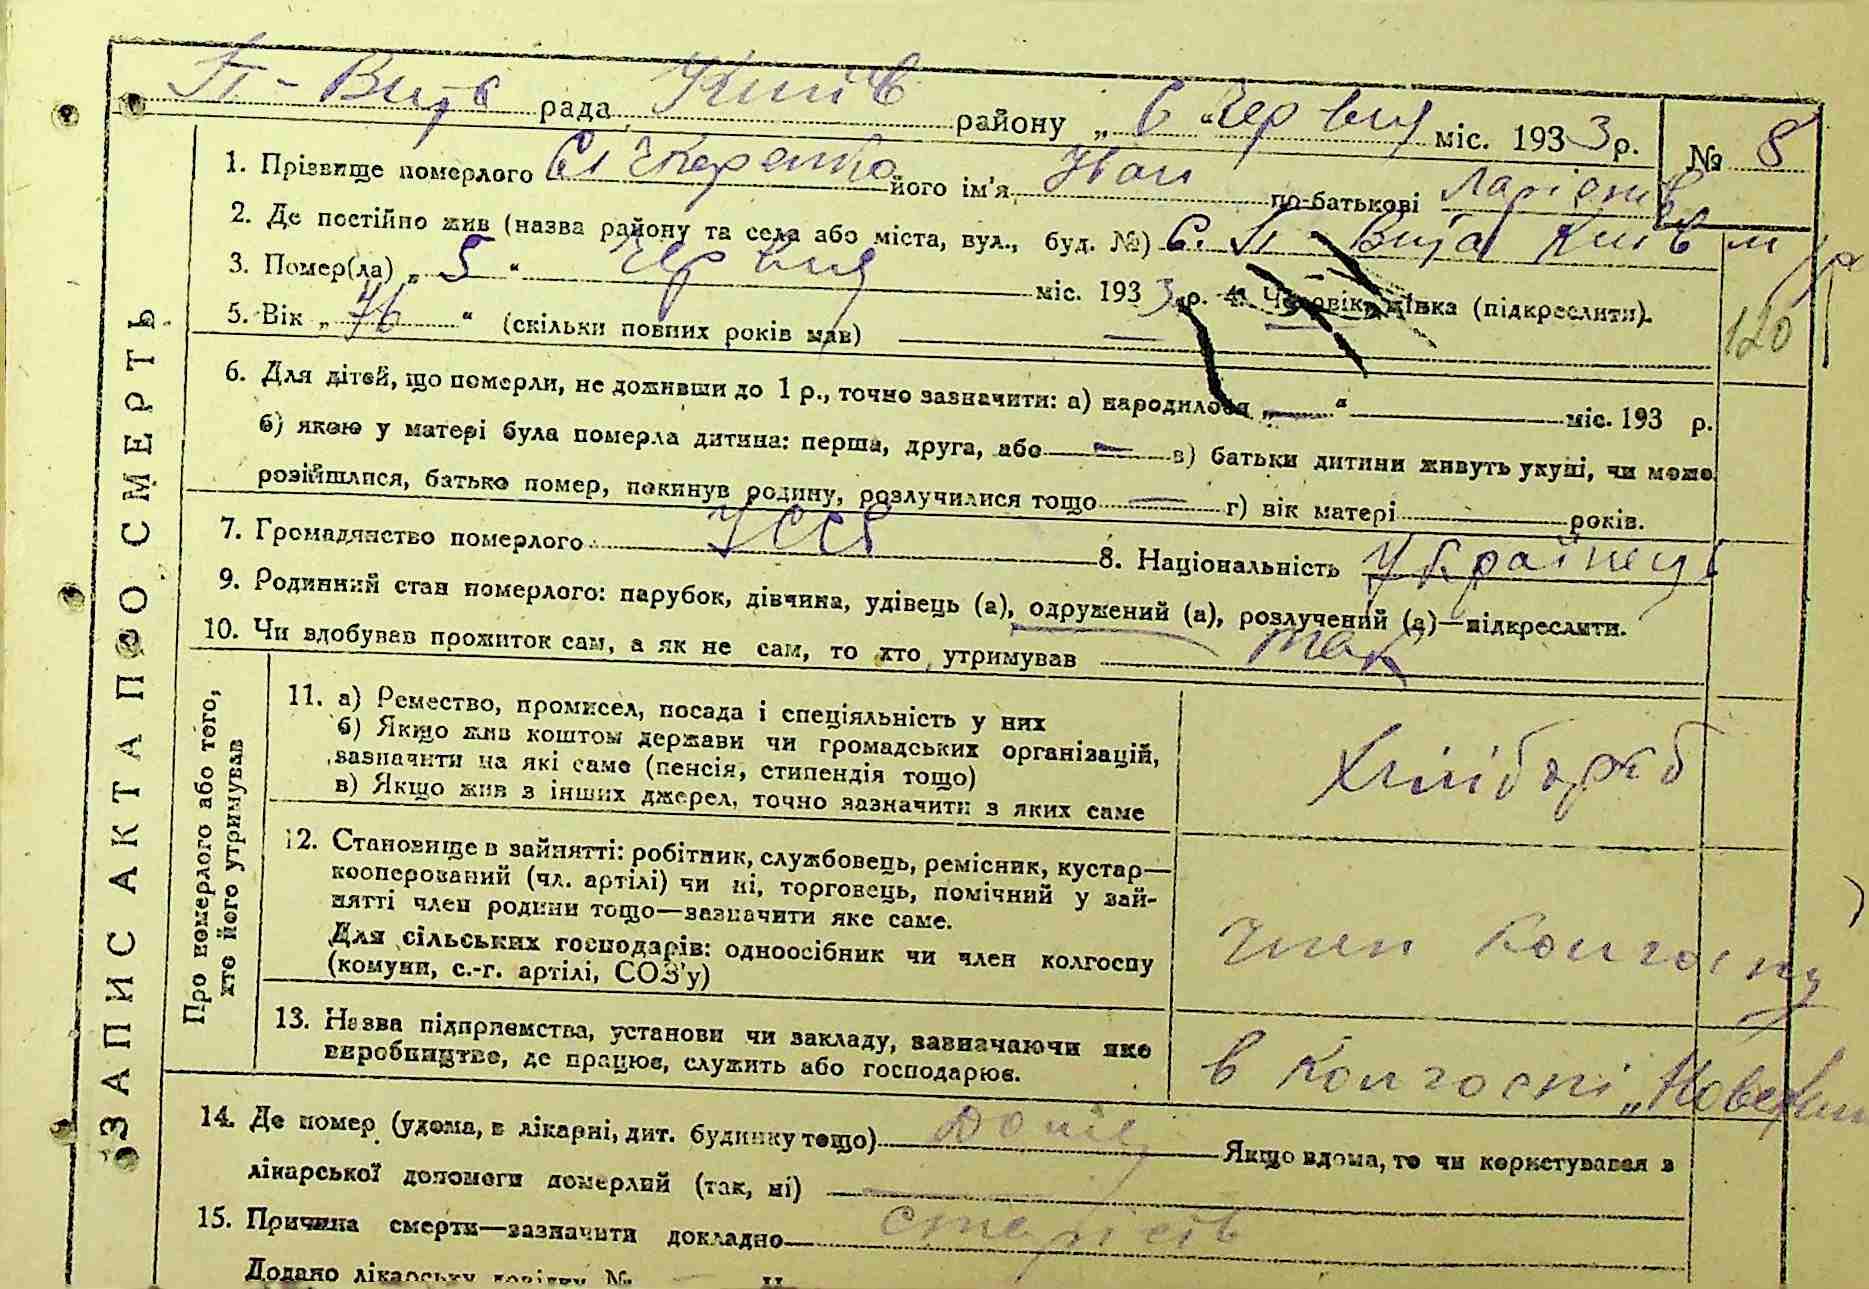 П-Вита рада Київ району „ 6 “ Червня міс. 1933 р. № 8
1. Прізвище померлого його ім'я Іван по-батькові Ларіонів
2. Де постійно жив (назва району та села або міста, вул., буд. №) С. П-Вита Київ м
3. Помер(ла) „ 5 “ Червня міс. 1933 р. 4. Чоловік, дівка (підкреслити).
5. Вік „ 76 “ (скільки повних років мав) —
120
6. Для дітей, що померли, не доживши до 1 р., точно зазначити: а) народилося „ — “ міс. 193 р.
б) якою у матері була померла дитина: перша, друга, або — в) батьки дитини живуть укупі, чи може
розійшлися, батько помер, покинув родину, розлучилися тощо — г) вік матері років.
7. Громадянство померлого УССР 8. Національність Українець
9. Родинний стан померлого: парубок, дівчина, удівець (а), одружений (а), розлучений (а)—підкреслити.
10. Чи здобував прожиток сам, а як не сам, то хто утримував так
ЗАПИС АКТА ПО СМЕРТЬ
Про померлого або того, хто його утримував
11. а) Ремество, промисел, посада і спеціяльність у них
б) Якщо жив коштом держави чи громадських організацій,
зазначити на які саме (пенсія, стипендія тощо)
в) Якщо жив з інших джерел, точно зазначити з яких саме
Хлібороб
12. Становище в зайнятті: робітник, службовець, ремісник, кустар—
кооперований (чл. артілі) чи ні, торговець, помічний у зай-
нятті член родини тощо—зазначити яке саме.
Для сільських господарів: одноосібник чи член колгоспу
(комуни, с.-г. артілі, СОЗ'у)
Член колгоспу
13. Назва підприємства, установи чи закладу, зазначаючи яке
виробництво, де працює, служить або господарює.
в колгоспі
14. Де помер (удома, в лікарні, дит. будинку тощо) Дома Якщо вдома, то чи користувався з
лікарської допомоги померлий (так, ні) —
15. Причина смерти—зазначити докладно старість
Додано лікарську довідку №